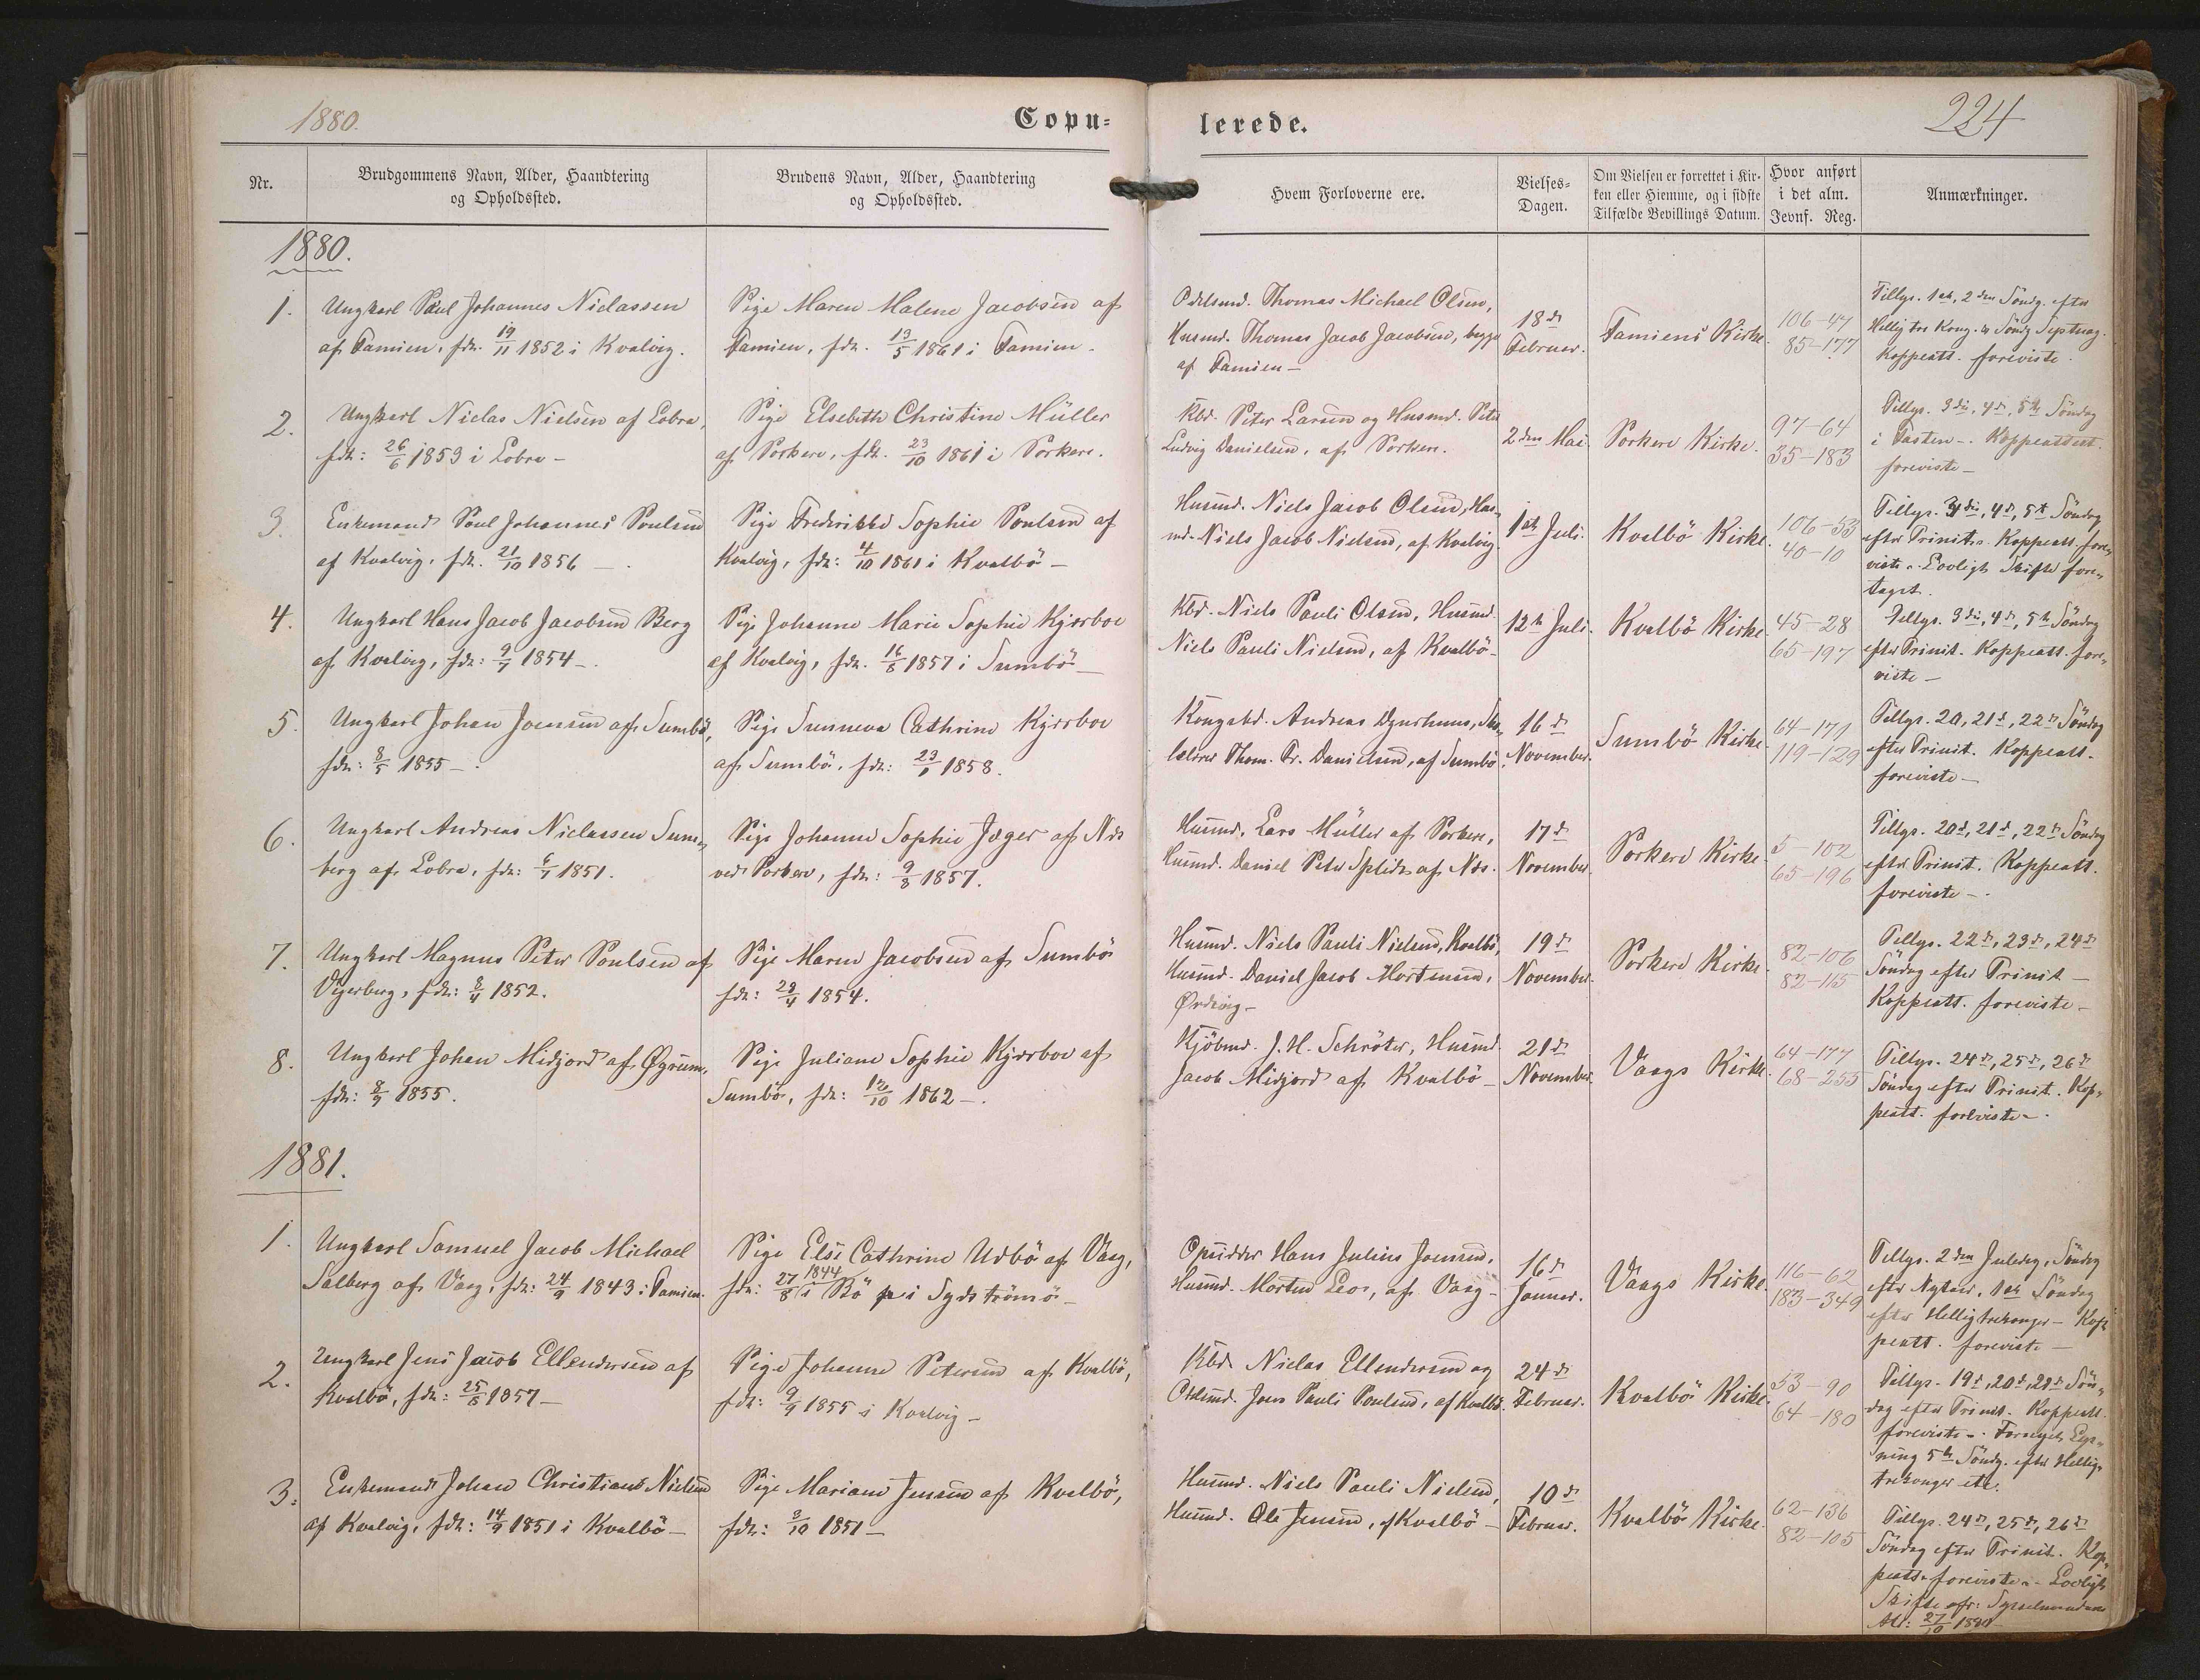 1880.
Copu=
Nr.
Brudgommens Navn, Alder, Haandtering
og Opholdssted.
Brudens Navn, Alder, Haandtering
og Opholdssted.
1880.
1.
Ungkarl Poul Johannes Niclassen
af Famien, fdt. 19/11 1852 i Kvalvig.
Pige Maren Malene Jacobsen af
Famien, fdt. 13/5 1861 i Famien.
2.
Ungkarl Niclas Nielsen af Lobra,
fdt: 26/6 1853 i Lobra —
Pige Elsebeth Christine Müller
af Porkere, fdt. 23/10 1861 i Porkere.
3.
Enkemand Poul Johannes Poulsen
af Kvalvig, fdt. 21/10 1856 —
Pige Frederikke Sophie Poulsen af
Kvalvig, fdt: 4/10 1861 i Kvalbö —
4.
Ungkarl Hans Jacob Jacobsen Berg
af Kvalvig, fdt: 1854 —
Pige Johanne Marie Sophie Kjærboe
af Kvalvig, fdt. 16/8 1857 i Sumbö —
5.
Ungkarl Johan Joensen af Sumbö,
fdt: 8/5 1855 —
Pige Sunneva Cathrine Kjærboe
af Sumbö, fdt: 1858.
6.
Ungkarl Andreas Niclassen Sum„
berg af Lobra, fdt: 1851.
Pige Johanne Sophie Jæger af Næs
ved Porkere, fdt: 9/8 1857.
7.
Ungkarl Magnus Peter Poulsen af
Vejerberg, fdt: 1852.
Pige Maren Jacobsen af Sumbö
fdt: 1854.
8.
Ungkarl Johan Midjord af Øgrum,
fdt: 1855.
Pige Juliane Sophie Kjærboe af
Sumbö, fdt: 12/10 1862 —
1881.
1.
Ungkarl Samuel Jacob Michael
Salberg af Vaag, fdt: 24/9 1843 i Famien.
Pige Else Cathrine Udbö af Vaag,
fdt: 27/8 1844 i Bö i Sydströmö —
2.
Ungkarl Jens Jacob Ellendersen af
Kvalbö, fdt: 25/8 1857 —
Pige Johanne Petersen af Kvalbö,
fdt: 9/9 1855 i Kvalvig —
3.
Enkemand Johan Christian Nielsen
af Kvalvig, fdt: 14/9 1851 i Kvalbö —
Pige Mariane Jensen af Kvalbö,
fdt: 3/10 1851 —
lerede.
224
Hvem Forloverne ere.
Vielses=
Dagen.
Om Vielsen er forrettet i Kir=
ken eller Hiemme, og i sidste
Tilfælde Bevillings Datum.
Hvor anført
i det alm.
Jevnf. Reg.
Anmærkninger.
Odelsmd. Thomas Michael Olsen,
Husmd. Thomas Jacob Jacobsen, begge
af Famien —
18de
Februar.
Famiens Kirke.
106-47
85-177
Tillys. 1ste, 2den Søndg. efter
Hellig tre Kong. & Søndg Septuag.
Koppeatt. foreviste.
Kbd. Peter Larsen og Husmd. Peter
Ludvig Danielsen, af Porkere.
2den Mai.
Porkere Kirke.
97-64
35-183
Tillys. 3die, 4de, 5te Søndag
i Fasten —. Koppeattest.
foreviste —
Husmd. Niels Jacob Olsen, Hus„
md. Niels Jacob Nielsen, af Kvalvig.
1ste Juli.
Kvalbö Kirke.
106-53
40-10
Tillys. 3die, 4de, 5te Søndag
efter Trinit. Koppeatt. fore„
viste. Lovligt Skifte fore„
taget.
Kbd. Niels Pauli Olsen, Husmd.
Niels Pauli Nielsen, af Kvalbö.
12te Juli.
Kvalbö Kirke
45-28
65-197
Tillys. 3die, 4de, 5te Søndag
efter Trinit. Koppeatt. fore„
viste —
Kongsbd. Andreas Dyurhuus, Sko„
lelærer Thom. Fr. Danielsen, af Sumbö
16de
November.
Sumbö Kirke.
64-171
119-129
Tillys. 20, 21de, 22de Søndag
efter Trinit. Koppeatt.
foreviste —
Husmd. Lars Müller af Porkere,
Husmd. Daniel Peter Splidt af Næs.
17de
November.
Porkere Kirke.
5-102
65-196
Tillys. 20de, 21de, 22de Søndag
efter Trinit. Koppeatt.
foreviste —.
Husmd. Niels Pauli Nielsen, Kvalbö,
Husmd. Daniel Jacob Mortensen,
Ørdevig —
19de
November.
Porkere Kirke.
82-106
82-115
Tillys. 22de, 23de, 24de
Søndag efter Trinit —
Koppeatt. foreviste —
Kjöbmd. J. H. Schröter, Husmd.
Jacob Midjord af Kvalbö —
21de
November.
Vaags Kirke.
64-177
68-255
Tillys. 24de, 25de, 26de
Søndag efter Trinit. Kop„
peatt. foreviste —.
Hans Julius Joensen,
Husmd. Morten Leo, af Vaag —
16de
Januar.
Vaags Kirke.
116-62
183-349
Tillys. 2den Juledag, Søndag
efter Nytaar, 1ste Søndag
efter Hellig trekonger — Kop
peatt. foreviste —
Kbd. Niclas Ellendersen og
Jens Pauli Poulsen, af Kvalbö.
24de
Februar.
Kvalbö Kirke.
53-90
64-180
Tillys. 19de, 20de, 21de Søn„
dag efter Trinit. Koppeatt.
foreviste —. Fornyet Lys„
ning 5te Søndg. efter Hellig„
trekonger etc.
Husmd. Niels Pauli Nielsen,
Husmd. Ole Jensen, af Kvalbö —
10de
Februar.
Kvalbö Kirke.
62-136
82-105
Tillys. 24de, 25de, 26de
Søndag efter Trinit. Kop„
peatt. foreviste. — Lovligt
Skifte efr: Sysselmandens
Att: 27/10 1880